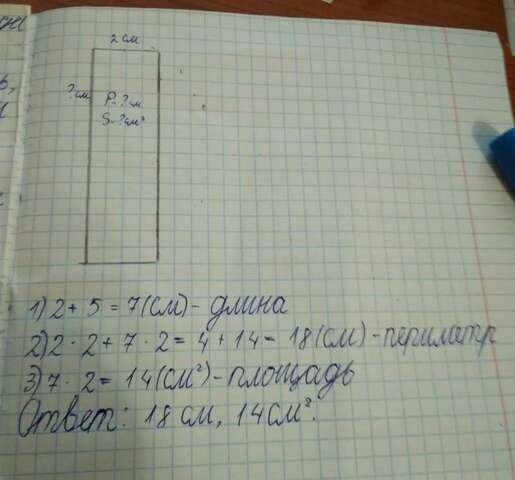 2 см
? см
P-? см
S-? см²
1) 2 + 5 = 7 (см) - длина
2) 2 · 2 + 7 · 2 = 4 + 14 = 18 (см) - периметр
3) 7 · 2 = 14 (см²) - площадь
Ответ: 18 см, 14 см².